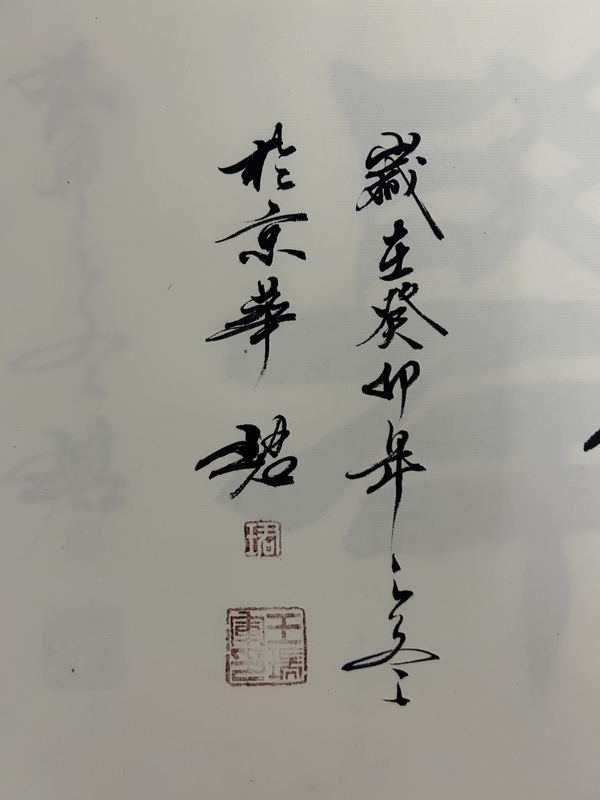 歲在癸卯年之冬
於京華 珺
珺